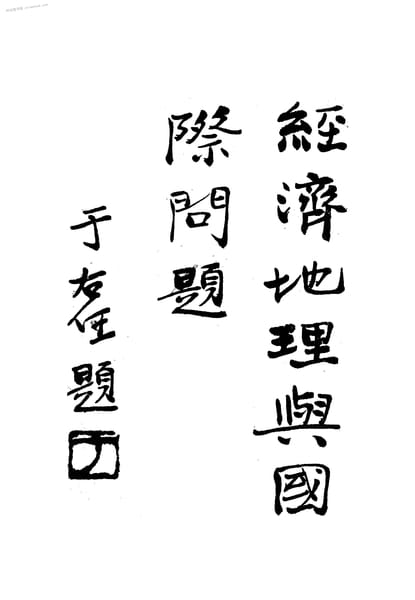 經濟地理與國
際問題
于右任題